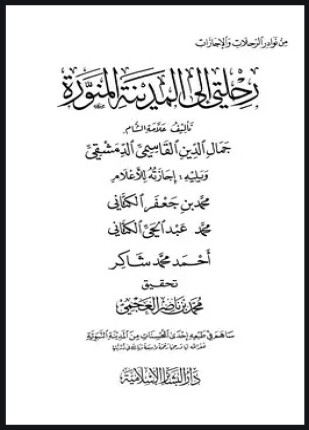 من نوادر الرحلات والإجازات
رحلتي إلى المدينة المنورة
تأليف علامة الشام
جمال الدين القاسمي الدمشقي
ويليه: إجازته للأعلام
محمد بن جعفر الكتاني
محمد عبد الحي الكتاني
أحمد محمد شاكر
تحقيق
محمد بن ناصر العجمي
ساهم في طبعه إحدى المحسنات من المدينة النبوية
دار البشائر الإسلامية